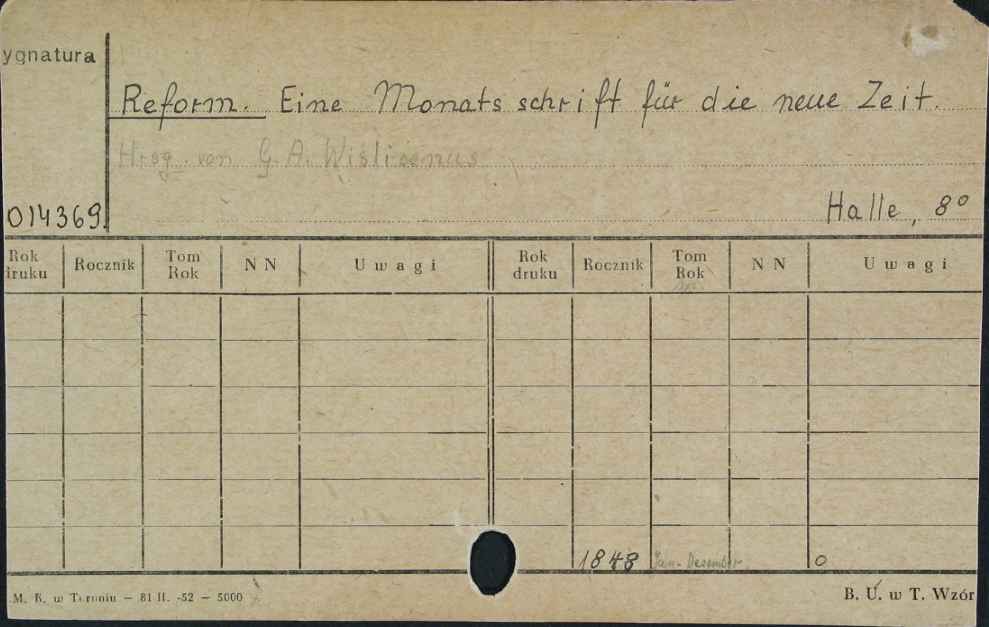 ygnatura
Reform. Eine Monatsschrift für die neue Zeit.
Hrsg. von G. A. Wislicenus
014369
Halle, 8°
Rok druku Rocznik Tom Rok NN Uwagi Rok druku Rocznik Tom Rok NN Uwagi
1848 Jan-Dezember 0
M. B. w Toruniu — 81 II. -52 — 5000
B. U. w T. Wzór